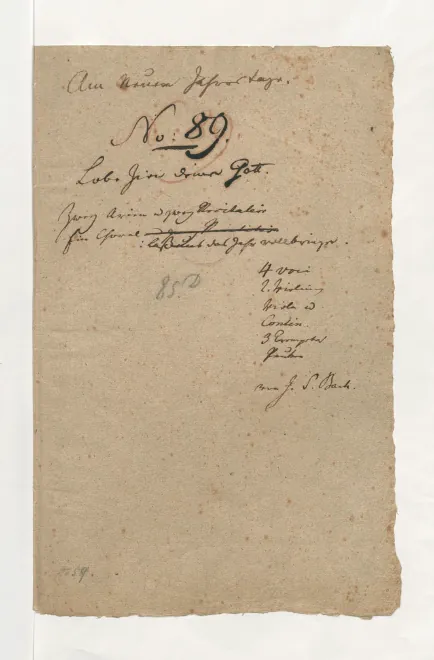 Am Neuen Jahres tage.
No: 89.
Lobe Zion deinen Gott.
Zwey Arien u zwey Recitative
Ein Choral
: laß uns das Jahr vollbringen.
85 D
4 voci
2. Violini
Viola u
Contin.
3 Trompeten
Pauken
von J. S. Bach.